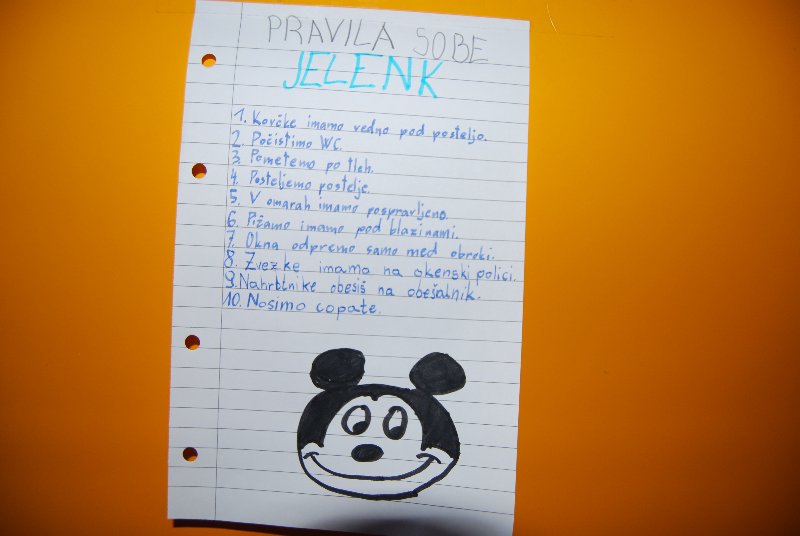 PRAVILA SOBE
JELENK
1. Kovčke imamo vedno pod posteljo.
2. Počistimo WC.
3. Pometemo po tleh.
4. Posteljemo postelje.
5. V omarah imamo pospravljeno.
6. Pižamo imamo pod blazinami.
7. Okna odpremo samo med obroki.
8. Zvezke imamo na okenski polici.
9. Nahrbtnike obesiš na obešalnik.
10. Nosimo copate.